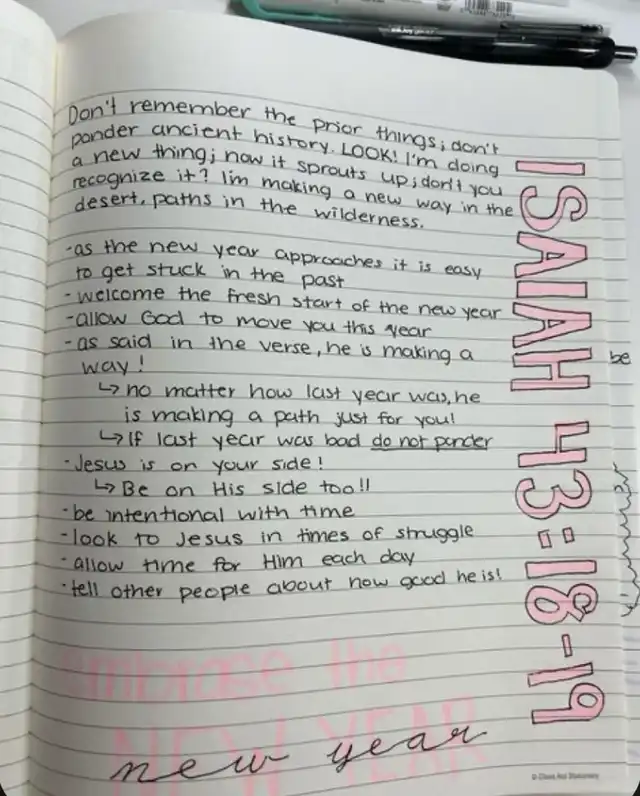 Don't remember the prior things; don't
ponder ancient history. LOOK! I'm doing
a new thing; now it sprouts up; don't you
recognize it? I'm making a new way in the
desert, paths in the wilderness.
-as the new year approaches it is easy
to get stuck in the past
- welcome the fresh start of the new year
-allow God to move you this year
-as said in the verse, he is making a
way!
↳ no matter how last year was, he
is making a path just for you!
↳ If last year was bad do not ponder
-Jesus is on your side!
↳ Be on His side too!!
-be intentional with time
-look to Jesus in times of struggle
- allow time for Him each day
-tell other people about how good he is!
embrase the
NEW YEAR
new year
ISAIAH 43:18-19
be
© Class Act Stationery